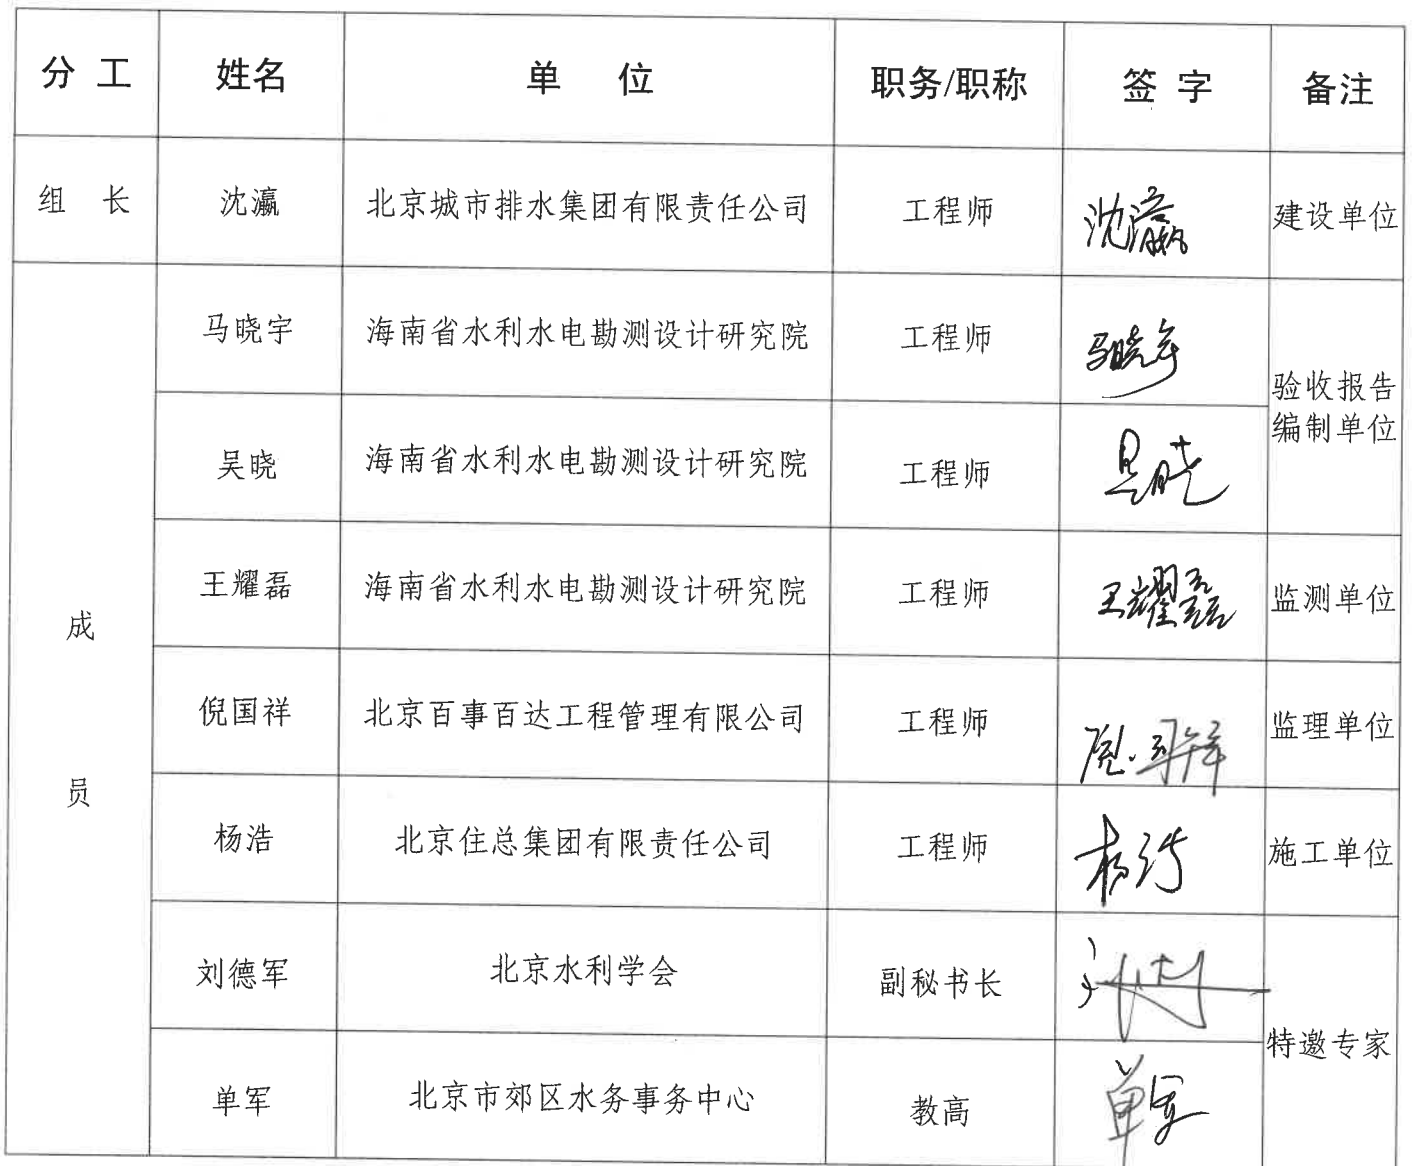 分 工 姓名 单 位 职务/职称 签 字 备注
组 长 沈瀛 北京城市排水集团有限责任公司 工程师 沈瀛 建设单位
成员
马晓宇 海南省水利水电勘测设计研究院 工程师 马晓宇
验收报告
编制单位
吴晓 海南省水利水电勘测设计研究院 工程师 吴晓
王耀磊 海南省水利水电勘测设计研究院 工程师 王耀磊 监测单位
倪国祥 北京百事百达工程管理有限公司 工程师 倪国祥 监理单位
杨浩 北京住总集团有限责任公司 工程师 杨浩 施工单位
刘德军 北京水利学会 副秘书长
特邀专家
单军 北京市郊区水务事务中心 教高 单军